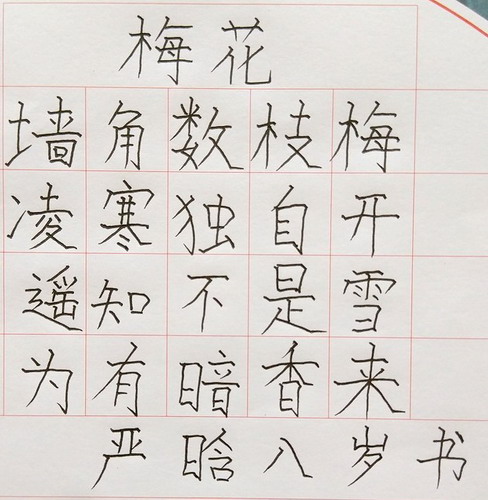 梅花
墙角数枝梅
凌寒独自开
遥知不是雪
为有暗香来
严晗八岁书